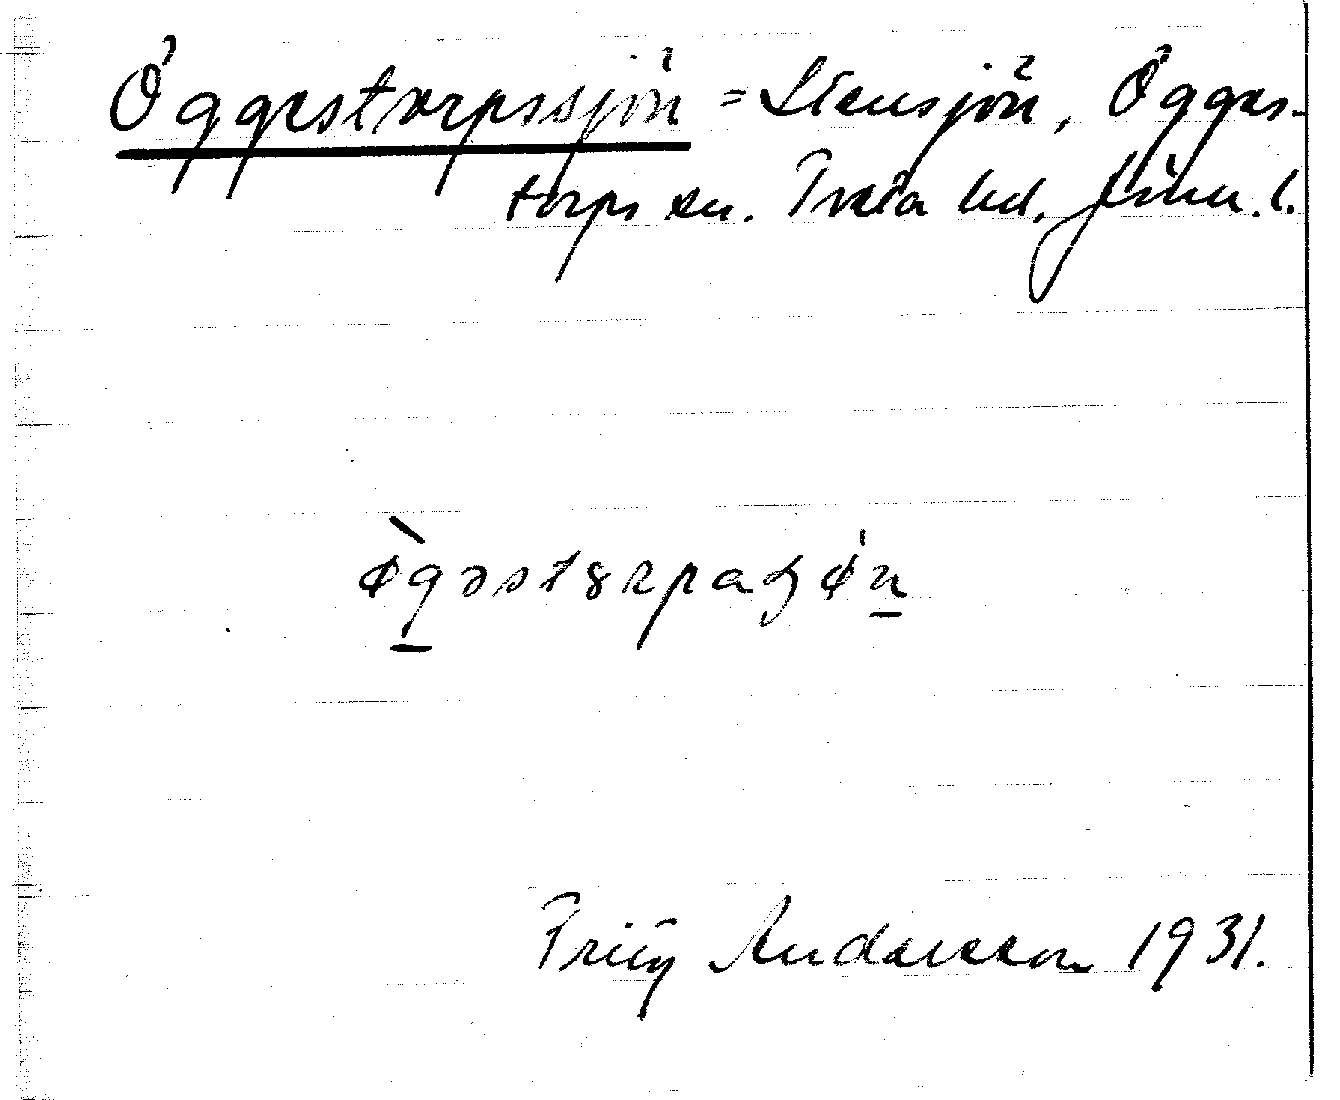 Öggestorpssjön = Stensjön, Ögges-
torps sn. Tveta hd, Jönk. l.
ø̀gəstɞrpaʂøn
Thiry Andersson 1931.